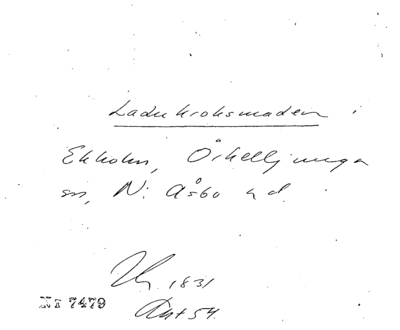 Ladukroksmaden
Ekholm, Örkelljunga
sn, N. Åsbo hd.
1831
Nr 7479 Ant 54.